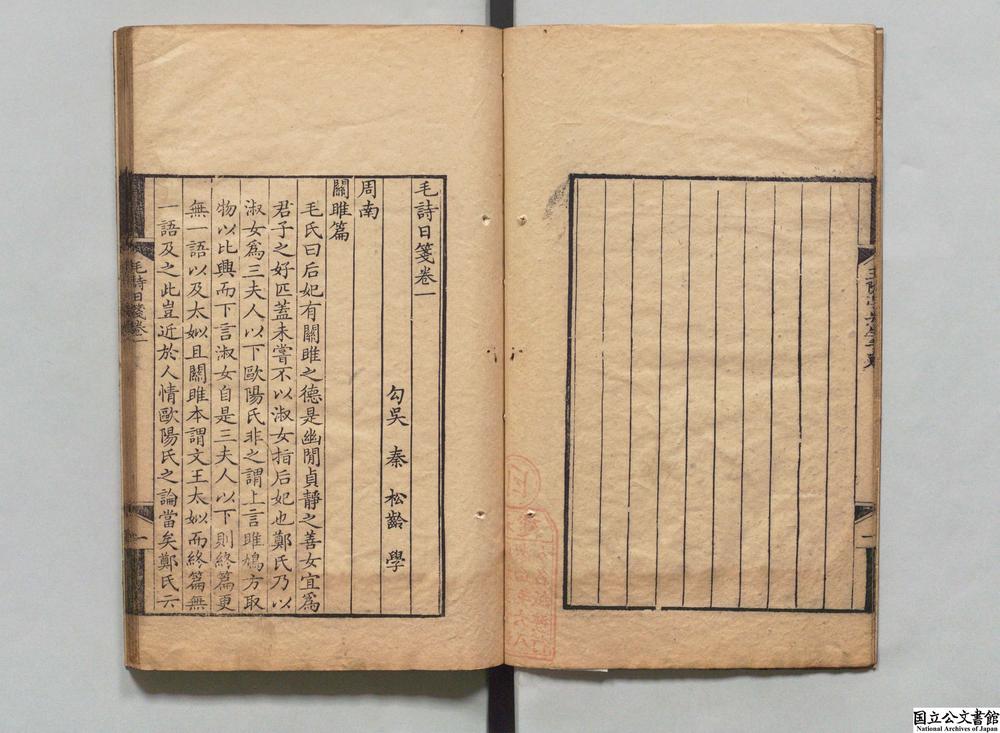 毛詩日箋卷一
勾吳　秦　松齡　學
周南
關雎篇
毛氏曰后妃有關雎之德是幽閒貞靜之善女宜爲
君子之好匹蓋未嘗不以淑女指后妃也鄭氏乃以
淑女爲三夫人以下歐陽氏非之謂上言雎鳩方取
物以比興而下言淑女自是三夫人以下則終篇更
無一語以及太姒且關雎本謂文王太姒而終篇無
一語及之此豈近於人情歐陽氏之論當矣鄭氏云
毛詩日箋卷一
一
一
国立公文書館
National Archives of Japan